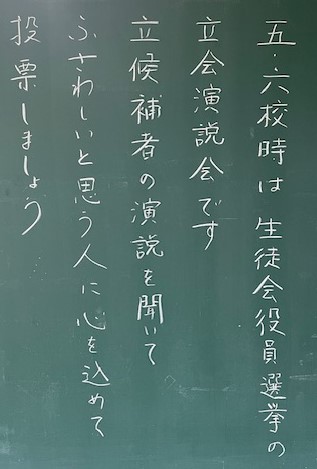 五・六校時は生徒会役員選挙の
立会演説会です
立候補者の演説を聞いて
ふさわしいと思う人に心を込めて
投票しましょう